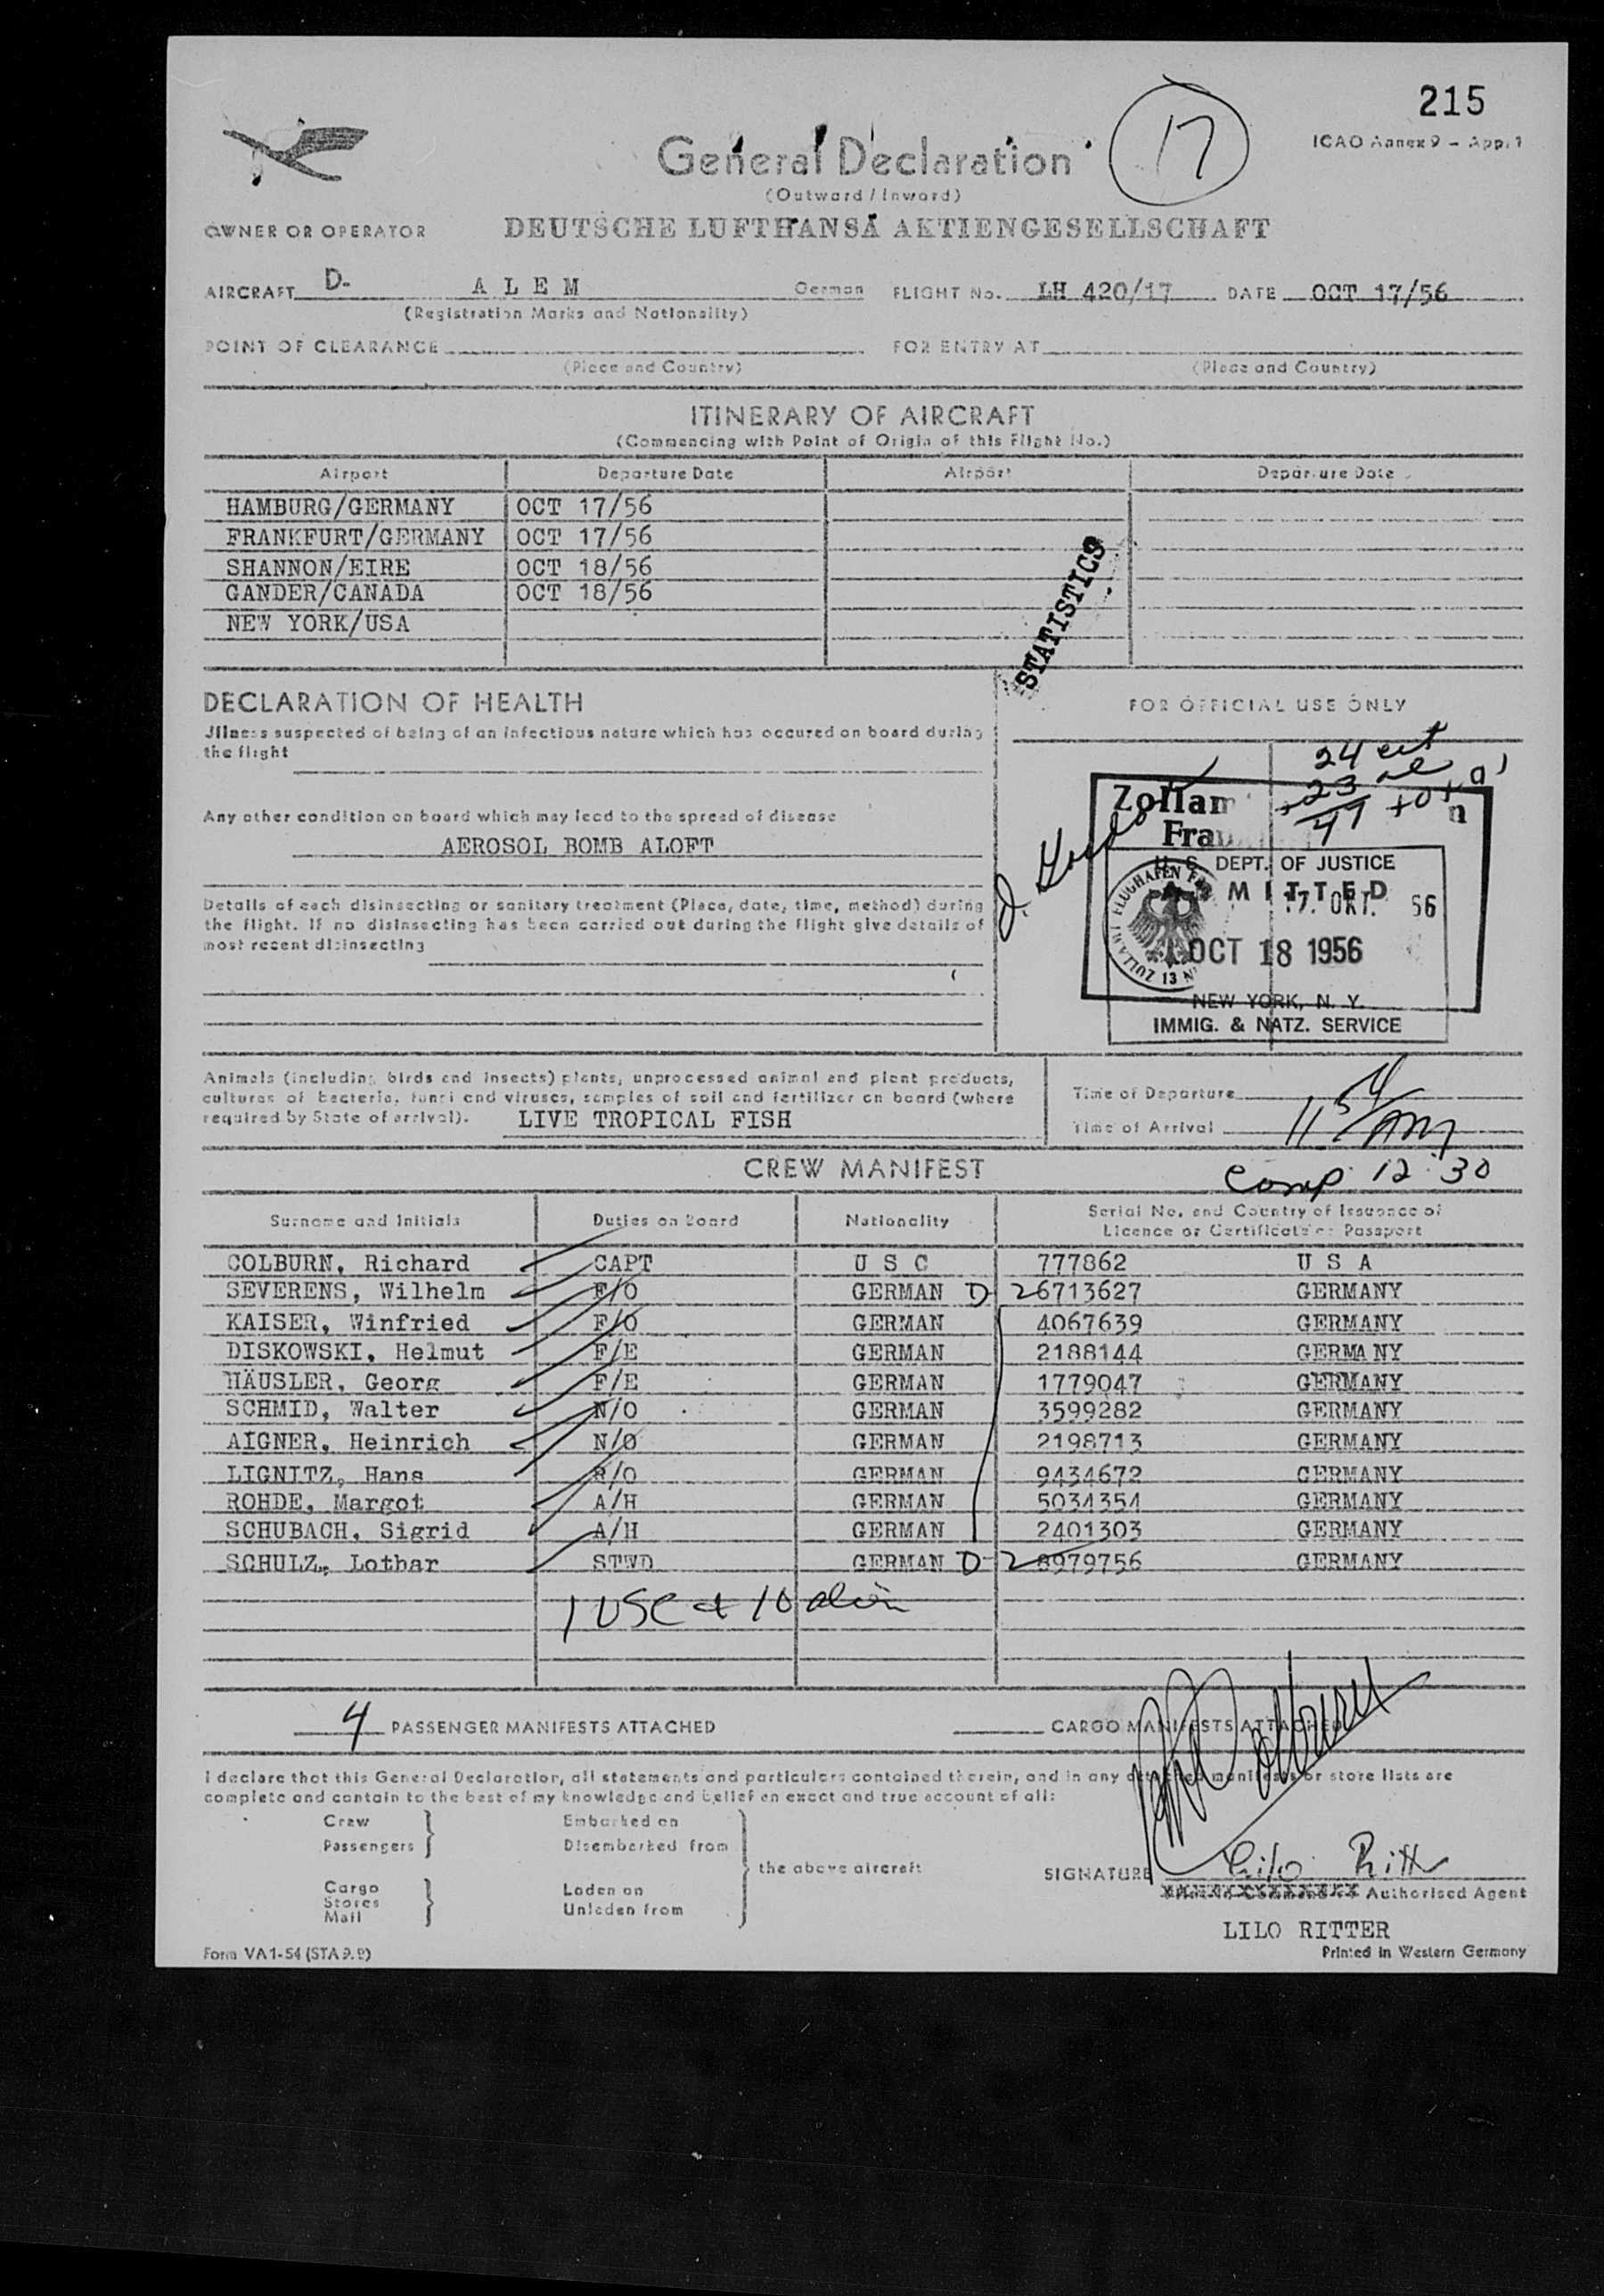 215
ICAO Annex 9 - App. 1
17
General Declaration
(Outward / Inward)
OWNER OR OPERATOR DEUTSCHE LUFTHANSA AKTIENGESELLSCHAFT
AIRCRAFT D- A L E M German FLIGHT No. LH 420/17 DATE OCT 17/56
(Registration Marks and Nationality)
POINT OF CLEARANCE FOR ENTRY AT
(Place and Country) (Place and Country)
ITINERARY OF AIRCRAFT
(Commencing with Point of Origin of this Flight No.)
Airport Departure Date Airport Departure Date
HAMBURG/GERMANY OCT 17/56
FRANKFURT/GERMANY OCT 17/56
SHANNON/EIRE OCT 18/56
GANDER/CANADA OCT 18/56
NEW YORK/USA
STATISTICS
DECLARATION OF HEALTH
Jllness suspected of being of an infectious nature which has occured on board during
the flight
Any other condition on board which may lead to the spread of disease
AEROSOL BOMB ALOFT
Details of each disinsecting or sanitary treatment (Place, date, time, method) during
the flight. If no disinsecting has been carried out during the flight give details of
most recent disinsecting
FOR OFFICIAL USE ONLY
24
+23
47
Zollam
Fra
U. S. DEPT. OF JUSTICE
MITTED
17. OKT. 56
OCT 18 1956
NEW YORK, N. Y.
IMMIG. & NATZ. SERVICE
Animals (including birds and insects) plants, unprocessed animal and plant products,
cultures of bacteria, fungi and viruses, samples of soil and fertilizer on board (where
required by State of arrival). LIVE TROPICAL FISH
Time of Departure
Time of Arrival 11 54 AM
Comp 12:30
CREW MANIFEST
Surname and Initials Duties on Board Nationality Serial No. and Country of Issuance of
Licence or Certificate or Passport
COLBURN, Richard CAPT U S C 777862 U S A
SEVERENS, Wilhelm F/O GERMAN D 26713627 GERMANY
KAISER, Winfried F/O GERMAN 4067639 GERMANY
DISKOWSKI, Helmut F/E GERMAN 2188144 GERMA NY
HÄUSLER, Georg F/E GERMAN 1779047 GERMANY
SCHMID, Walter N/O GERMAN 3599282 GERMANY
AIGNER, Heinrich N/O GERMAN 2198713 GERMANY
LIGNITZ, Hans R/O GERMAN 9434672 GERMANY
ROHDE, Margot A/H GERMAN 5034354 GERMANY
SCHUBACH, Sigrid A/H GERMAN 2401303 GERMANY
SCHULZ, Lothar STWD GERMAN D-2 8979756 GERMANY
1 USC + 10 alien
4 PASSENGER MANIFESTS ATTACHED CARGO MANIFESTS ATTACHED
I declare that this General Declaration, all statements and particulars contained therein, and in any attached manifests or store lists are
complete and contain to the best of my knowledge and belief an exact and true account of all:
Crew Embarked on
Passengers Disembarked from
the above aircraft
Cargo Laden on
Stores Unladen from
Mail
SIGNATURE Lilo Ritter
Authorised Agent
LILO RITTER
Form VA1-54 (STA 9.9) Printed in Western Germany